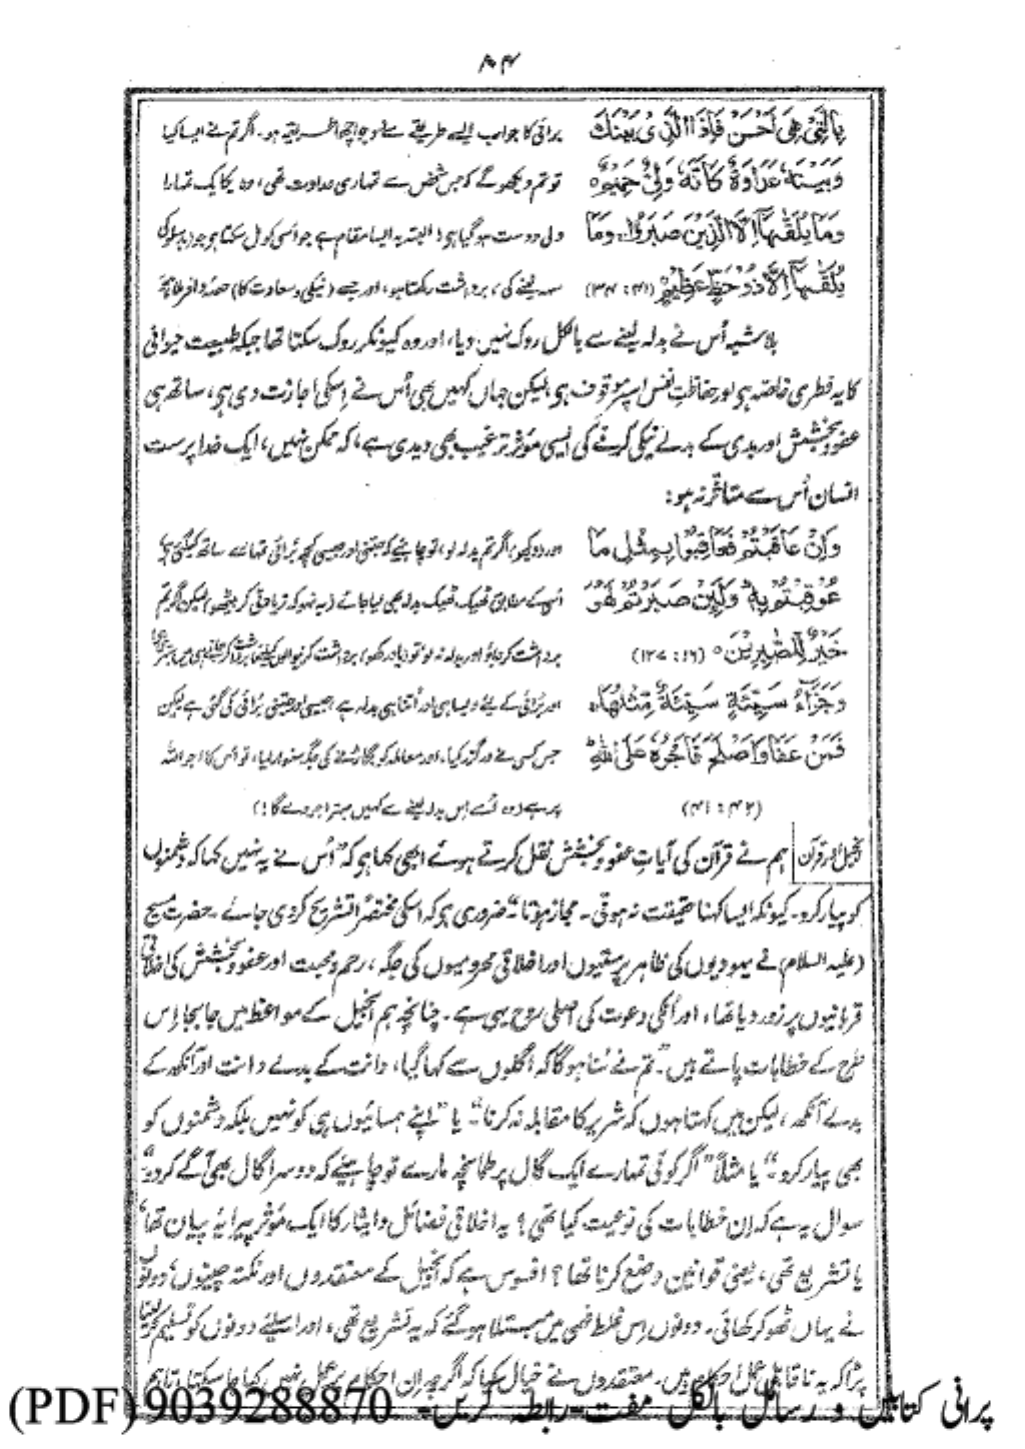 بِالَّتِيْ هِيَ اَحْسَنُ فَاِذَا الَّذِيْ بَيْنَكَ برائی کا جواب ایسے طریقے سے دو جو اچھا طریقہ ہو۔ اگر تم نے ایسا کیا
وَبَيْنَهٗ عَدَاوَةٌ كَاَنَّهٗ وَلِيٌّ حَمِيْمٌ○ تو تم دیکھو گے کہ جس شخص سے تمہاری عداوت تھی، وہ یکایک تمہارا
وَمَا يُلَقّٰىهَآ اِلَّا الَّذِيْنَ صَبَرُوْا، وَمَا ولی دوست ہو گیا ہی! البتہ یہ ایسا مقام ہے جو اُسی کو مل سکتا ہو جو بدسلوکی
يُلَقّٰىهَآ اِلَّا ذُوْ حَظٍّ عَظِيْمٍ (۴۱: ۳۴) سہہ لینے کی برداشت رکھتا ہو، اور جسے (نیکی و سعادت کا) حصۂ وافر ملا ہو
بلا شبہ اُس نے بدلہ لینے سے بالکل روک نہیں دیا، اور وہ کیونکر روک سکتا تھا جبکہ طبیعت حیوانی
کا یہ فطری خاصہ ہی اور حفاظتِ نفس اسپر موقوف ہی، لیکن جہاں کہیں بھی اُس نے اِسکی اجازت دی ہی، ساتھ ہی
عفو و بخشش اور بدی کے بدلے نیکی کرنے کی ایسی مؤثر ترغیب بھی دیدی ہے، کہ ممکن نہیں، ایک خدا پرست
انسان اُس سے متاثر نہ ہو:
وَاِنْ عَاقَبْتُمْ فَعَاقِبُوْا بِمِثْلِ مَا اور دیکھو، اگر تم بدلہ لو، تو چاہئیے کہ جتنی اور جیسی کچھ بُرائی تمہارے ساتھ کی گئی ہی
عُوْقِبْتُمْ بِهٖ وَلَئِنْ صَبَرْتُمْ لَهُوَ اُسی کے مطابق ٹھیک ٹھیک بدلہ بھی لیا جائے (یہ نہو کہ زیادتی کر بیٹھو) لیکن اگر تم
خَيْرٌ لِّلصّٰبِرِيْنَ○ (۱۶: ۱۲۷) برداشت کر جاؤ اور بدلہ نہ لو تو (یاد رکھو) برداشت کرنیوالوں کیلئے برداشت کر جانے ہی میں بہتری ہی
وَجَزَآءُ سَيِّئَةٍ سَيِّئَةٌ مِّثْلُهَا، اور بُرائی کے لیے ویسا ہی اور اُتنا ہی بدلہ ہے جیسی اور جتنی بُرائی کی گئی ہے لیکن
فَمَنْ عَفَا وَاَصْلَحَ فَاَجْرُهٗ عَلَى اللّٰهِ جس کسی نے درگزر کیا، اور معاملہ کو بگاڑنے کی جگہ سنوار لیا، تو اُس کا اجر اللہ
(۴۲: ۴۱) پر ہے (وہ اُسے اِس بدلہ لینے سے کہیں بہتر اجر دے گا!)
انجیل اور قرآن
ہم نے قرآن کی آیاتِ عفو و بخشش نقل کرتے ہوئے ابھی کہا ہی کہ "اُس نے یہ نہیں کہا کہ دشمنوں
کو پیار کرو۔ کیونکہ ایسا کہنا حقیقت نہ ہوتی۔ مجاز ہوتا" ضروری ہی کہ اسکی مختصراً تشریح کر دی جائے۔ حضرت مسیح
(علیہ السلام) نے یہودیوں کی ظاہر پرستیوں اور اخلاقی محرومیوں کی جگہ، رحم و محبت اور عفو و بخشش کی اخلاقی
قربانیوں پر زور دیا تھا، اور اُنکی دعوت کی اصلی روح یہی ہے۔ چنانچہ ہم انجیل کے مواعظ میں جا بجا اِس
طرح کے خطابات پاتے ہیں۔ "تم نے سُنا ہوگا کہ اگلوں سے کہا گیا، دانت کے بدلے دانت اور آنکھ کے
بدلے آنکھ، لیکن میں کہتا ہوں کہ شریر کا مقابلہ نہ کرنا" یا "اپنے ہمسائیوں ہی کو نہیں بلکہ دشمنوں کو
بھی پیار کرو" یا مثلاً "اگر کوئی تمہارے ایک گال پر طمانچہ مارے تو چاہئیے کہ دوسرا گال بھی آگے کر دو"
سوال یہ ہے کہ اِن خطابات کی نوعیت کیا تھی؟ یہ اخلاقی فضائل و ایثار کا ایک مؤثر پیرایۂ بیان تھا،
یا تشریع تھی، یعنی قوانین وضع کرنا تھا؟ افسوس ہے کہ انجیل کے معتقدوں اور نکتہ چینیوں، دونوں
نے یہاں ٹھوکر کھائی۔ دونوں اِس غلط فہمی میں مبتلا ہو گئے کہ یہ تشریع تھی، اور اسلیئے دونوں کو تسلیم کر لینا
پڑا کہ یہ ناقابلِ عمل احکام ہیں۔ معتقدوں نے خیال کیا کہ اگرچہ اِن احکام پر عمل نہیں کیا جا سکتا، تاہم
پرانی کتابیں و رسائل بالکل مفت۔ رابطہ کریں۔ 9039288870 (PDF)